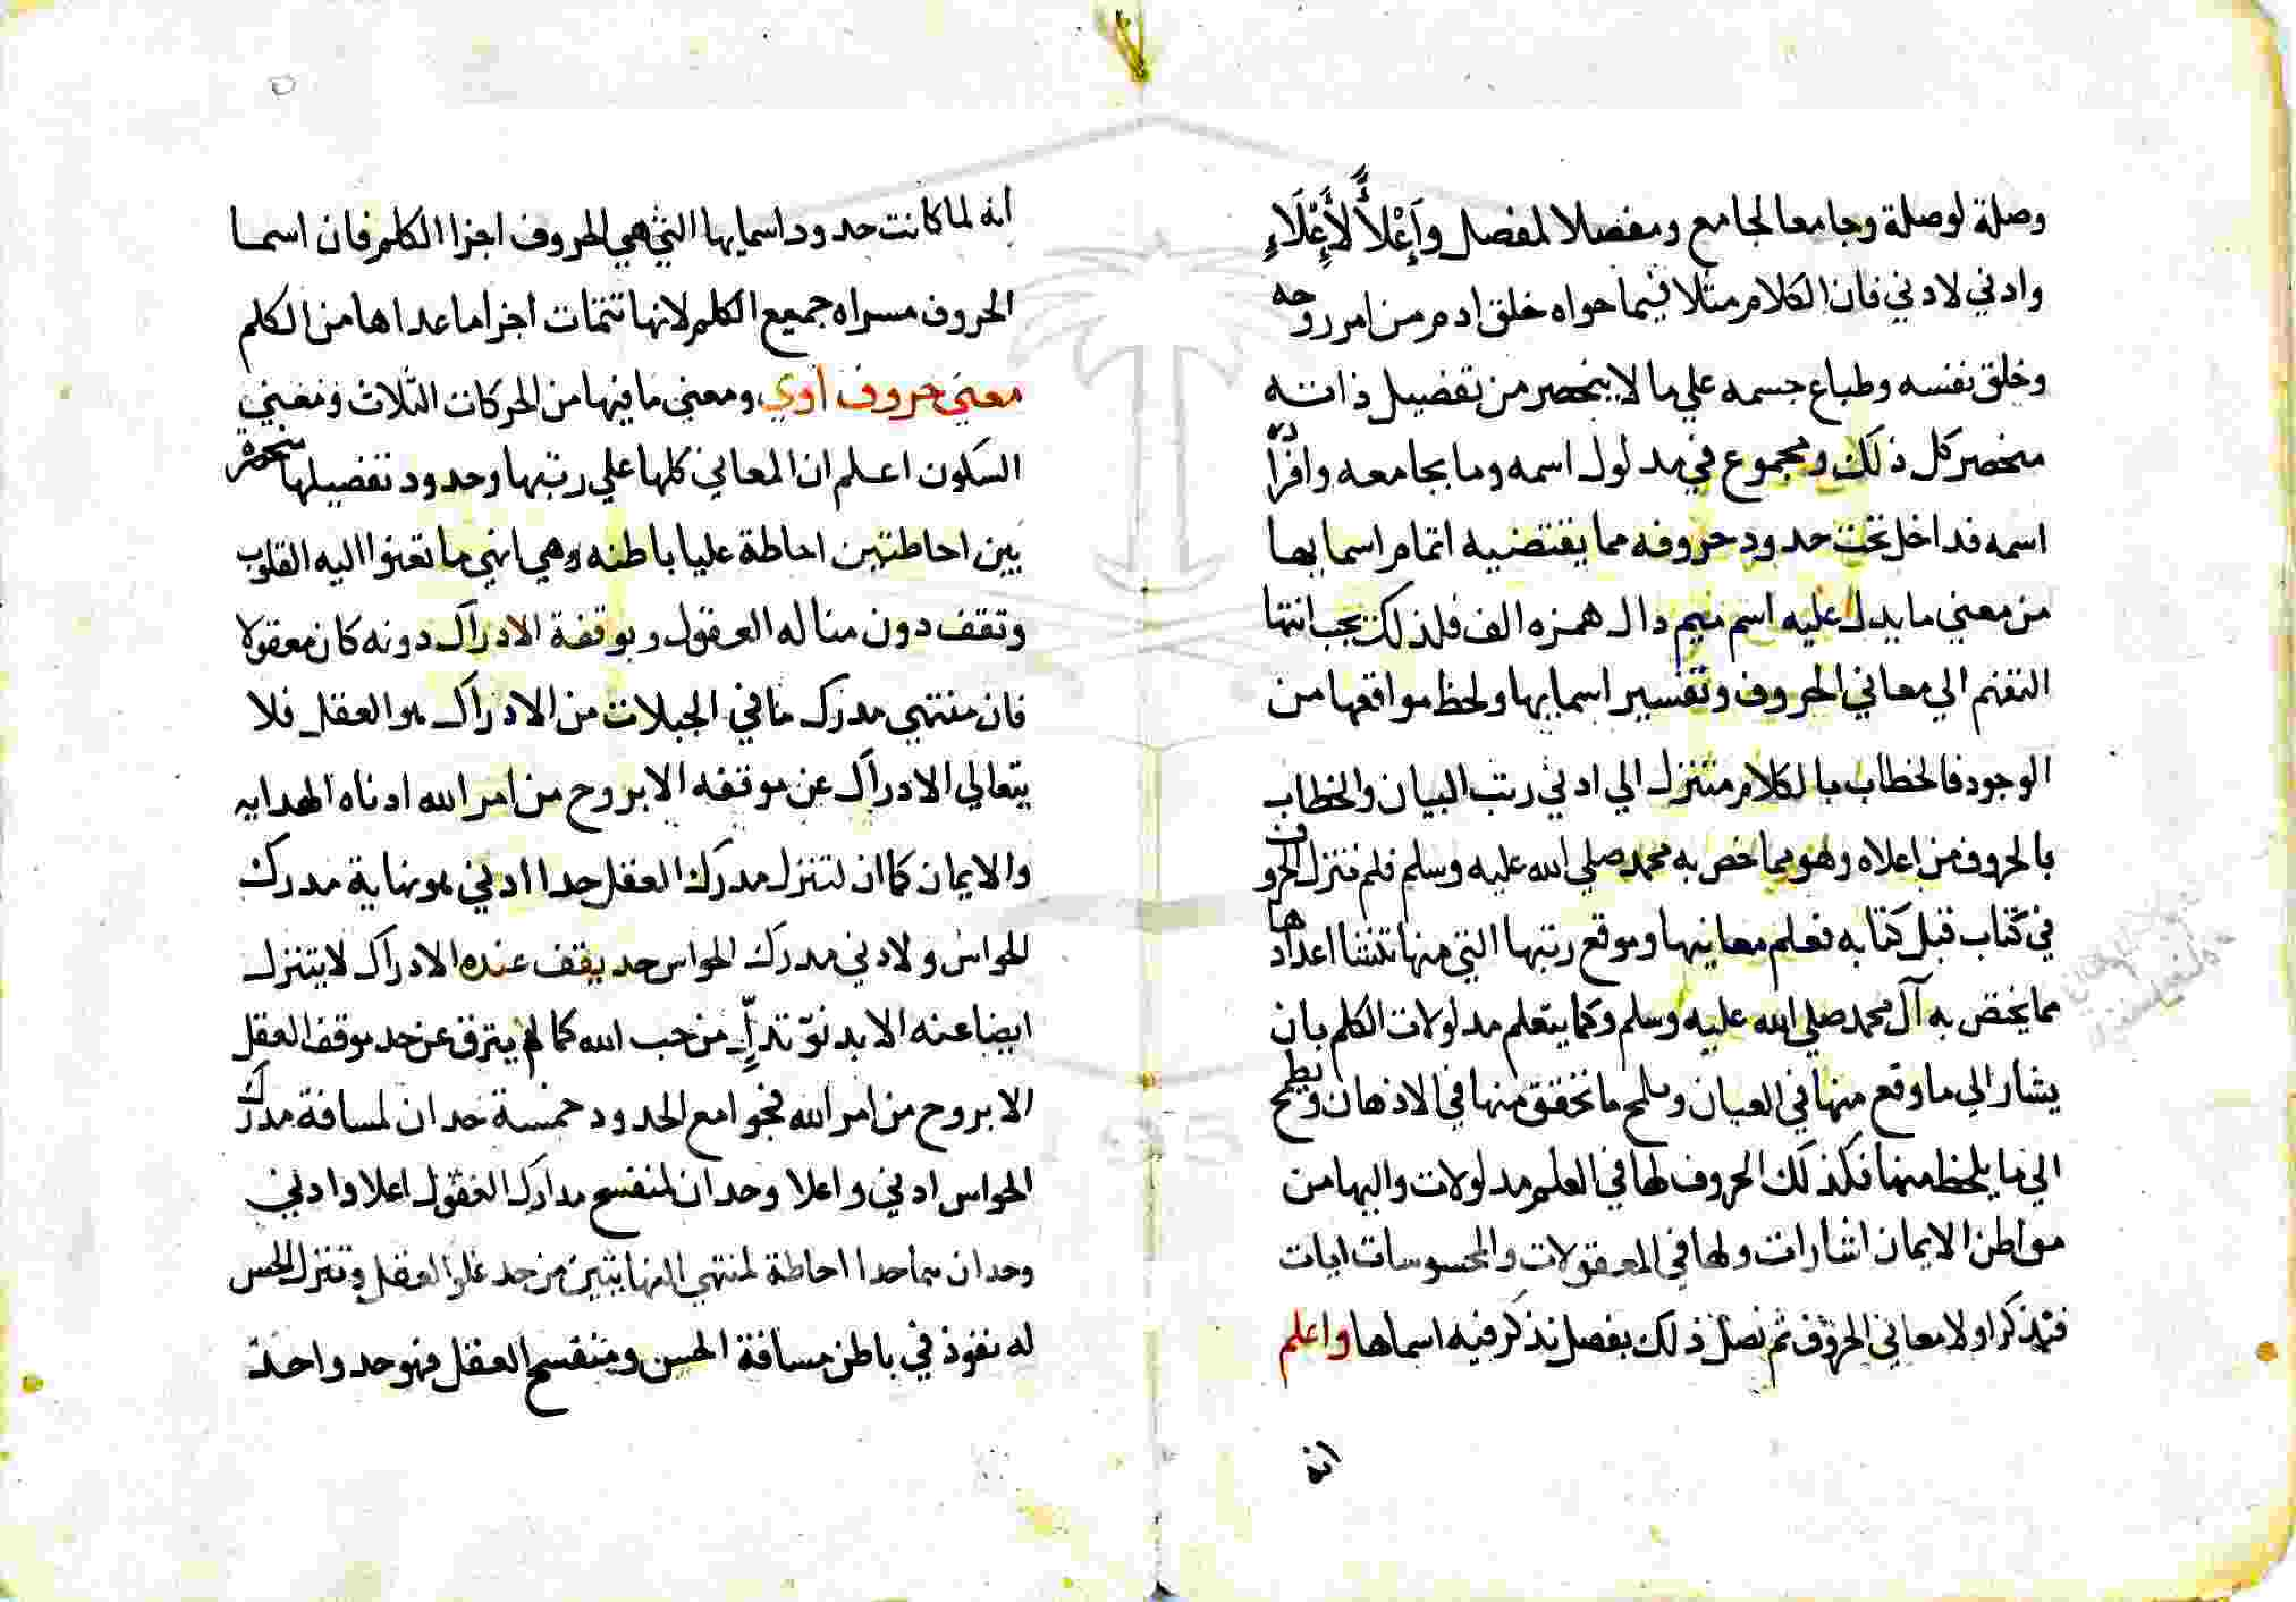 وصلة لوصلة وجامعا لجامع ومفصلا لمفصل وَإِعْلَأً لَأَعْلَاءِ
وادني لادني فان الكلام مثلا فيما حواه خلق ادم من امر روحه
وخلق نفسه وطباع جسمه علي ما لا ينحصر من تفصيل ذاته
منحصر كل ذلك ومجموع في مدلول اسمه وما بجامعه وافراده
اسمه فداخل تحت حدود حروفه مما يقتضيه اتمام اسمايها
من معني ما يدل عليه اسم ميم دال همزه الف فلذلك يجب انتها
التفهم الي معاني الحروف وتفسير اسمايها ولحظ مواقعها من
الوجود فالخطاب بالكلام متنزل الي ادني رتب البيان والخطاب
بالحروف من اعلاه وهو مما خص به محمد صلي الله عليه وسلم فلم تنزل الحروف
في كتاب قبل كتابه فعلم معانيها وموقع رتبها التي منها تنشا اعدادها
مما يختص به آل محمد صلي الله عليه وسلم وكما يتعلم مدلولات الكلم بان
يشار الي ما وقع منها في العيان ويلمح ما تحقق منها في الاذهان ويطمح
الي ما يلحظ منها فكذلك الحروف لها في العلم مدلولات واليها من
مواطن الايمان اشارات ولها في المعقولات والمحسوسات ايات
فنذكر اولا معاني الحروف ثم نصل ذلك بفصل نذكر فيه اسماها واعلم
انه
انه لما كانت حدود اسمايها التي هي الحروف اجزا الكلم فان اسما
الحروف مسراه جميع الكلم لانها تتمات اجزا ما عداها من الكلم
معني حروف اوي ومعني ما فيها من الحركات الثلاث ومعني
السكون اعلم ان المعاني كلها علي رتبها وحدود تفصيلها منحصرة
بين احاطتين احاطة عليا باطنه وهي انهي ما تعنوا اليه القلوب
وتقف دون مناله العقول وبوقفة الادراك دونه كان معقولا
فان منتهي مدرك ما في الجبلات من الادراك هو العقل فلا
يتعالي الادراك عن موقفه الا بروح من امر الله ادناه الهدايه
والايمان كما ان لتنزل مدرك العقل حدا ادني هو نهاية مدرك
الحواس ولادني مدرك الحواس حد يقف عنده الادراك لا يتنزل
ايضا عنه الا بدنوّ تدلٍّ من حب الله كما لم يترق عن حد موقف العقل
الا بروح من امر الله فجوامع الحدود خمسة حدان لمسافة مدرك
الحواس ادني واعلا وحدان لمنفسح مدارك العقول اعلا وادني
وحدان هما حدا احاطة لمنتهي النهايتين من حد علو العقل وتنزل الحس
له نفوذ في باطن مسافة الحس ومنفسح العقل فهو حد واحد